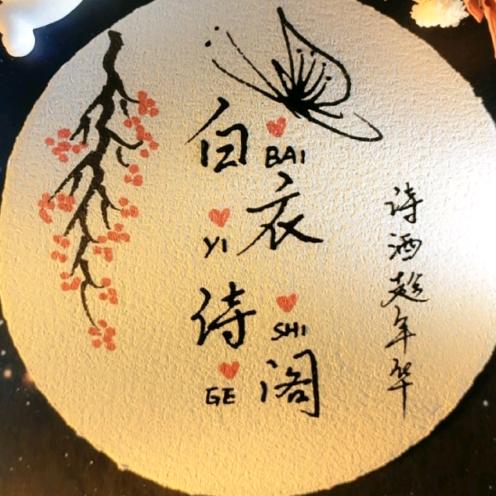 白
BAI
衣
YI
诗
SHI
阁
GE
诗酒趁年华